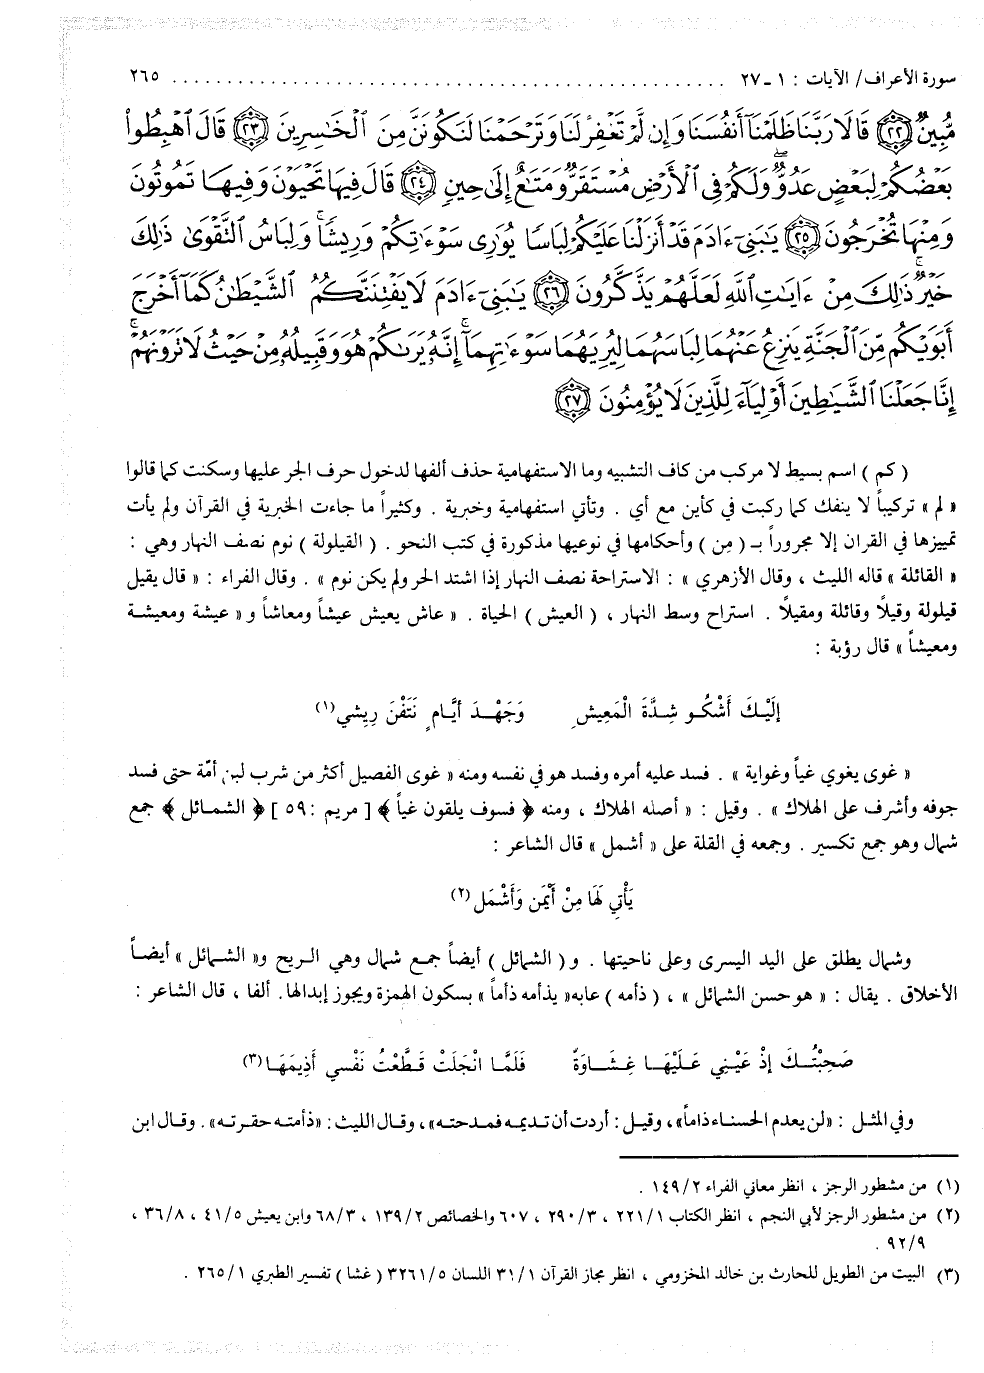 سورة الأعراف/ الآيات : ١ ـ ٢٧ ........................................ ٢٦٥
مُّبِينٌ ﴿٢٢﴾ قَالَا رَبَّنَا ظَلَمْنَآ أَنفُسَنَا وَإِن لَّمْ تَغْفِرْ لَنَا وَتَرْحَمْنَا لَنَكُونَنَّ مِنَ ٱلْخَٰسِرِينَ ﴿٢٣﴾ قَالَ ٱهْبِطُوا۟
بَعْضُكُمْ لِبَعْضٍ عَدُوٌّ ۖ وَلَكُمْ فِى ٱلْأَرْضِ مُسْتَقَرٌّ وَمَتَٰعٌ إِلَىٰ حِينٍ ﴿٢٤﴾ قَالَ فِيهَا تَحْيَوْنَ وَفِيهَا تَمُوتُونَ
وَمِنْهَا تُخْرَجُونَ ﴿٢٥﴾ يَٰبَنِىٓ ءَادَمَ قَدْ أَنزَلْنَا عَلَيْكُمْ لِبَاسًا يُوَٰرِى سَوْءَٰتِكُمْ وَرِيشًا ۖ وَلِبَاسُ ٱلتَّقْوَىٰ ذَٰلِكَ
خَيْرٌ ۚ ذَٰلِكَ مِنْ ءَايَٰتِ ٱللَّهِ لَعَلَّهُمْ يَذَّكَّرُونَ ﴿٢٦﴾ يَٰبَنِىٓ ءَادَمَ لَا يَفْتِنَنَّكُمُ ٱلشَّيْطَٰنُ كَمَآ أَخْرَجَ
أَبَوَيْكُم مِّنَ ٱلْجَنَّةِ يَنزِعُ عَنْهُمَا لِبَاسَهُمَا لِيُرِيَهُمَا سَوْءَٰتِهِمَآ ۗ إِنَّهُۥ يَرَىٰكُمْ هُوَ وَقَبِيلُهُۥ مِنْ حَيْثُ لَا تَرَوْنَهُمْ ۗ
إِنَّا جَعَلْنَا ٱلشَّيَٰطِينَ أَوْلِيَآءَ لِلَّذِينَ لَا يُؤْمِنُونَ ﴿٢٧﴾
( كم ) اسم بسيط لا مركب من كاف التشبيه وما الاستفهامية حذف ألفها لدخول حرف الجر عليها وسكنت كما قالوا
« لم » تركيباً لا ينفك كما ركبت في كأين مع أي . وتأتي استفهامية وخبرية . وكثيراً ما جاءت الخبرية في القرآن ولم يأت
تمييزها في القران إلا مجروراً بـ ( مِن ) وأحكامها في نوعيها مذكورة في كتب النحو . ( القيلولة ) نوم نصف النهار وهي :
« القائلة » قاله الليث ، وقال الأزهري » : الاستراحة نصف النهار إذا اشتد الحر ولم يكن نوم » . وقال الفراء : « قال يقيل
قيلولة وقيلًا وقائلة ومقيلًا . استراح وسط النهار ، ( العيش ) الحياة . « عاش يعيش عيشاً ومعاشاً و « عيشة ومعيشة
ومعيشاً » قال رؤبة :
إِلَيْكَ أَشْكُو شِدَّةَ الْمَعِيشِ     وَجَهْدَ أَيَّامٍ نَتَفْنَ رِيشِي(١)
« غوى يغوي غياً وغواية » . فسد عليه أمره وفسد هو في نفسه ومنه « غوى الفصيل أكثر من شرب لبن أمّه حتى فسد
جوفه وأشرف على الهلاك » . وقيل : « أصله الهلاك ، ومنه ﴿ فسوف يلقون غياً ﴾ [ مريم : ٥٩ ] ﴿ الشمائل ﴾ جمع
شمال وهو جمع تكسير . وجمعه في القلة على « أشمل » قال الشاعر :
يَأْتِي لَهَا مِنْ أَيْمَنٍ وَأَشْمَلِ(٢)
وشمال يطلق على اليد اليسرى وعلى ناحيتها . و ( الشمائل ) أيضاً جمع شمال وهي الريح و« الشمائل » أيضاً
الأخلاق . يقال : « هو حسن الشمائل » ، ( ذأمه ) عابه« يذأمه ذأماً » بسكون الهمزة ويجوز إبدالها. ألفا ، قال الشاعر :
صَحِبْتُكَ إِذْ عَيْنِي عَلَيْهَا غِشَاوَةٌ     فَلَمَّا انْجَلَتْ قَطَّعْتُ نَفْسِي أَذِيمَهَا(٣)
وفي المثل : «لن يعدم الحسناء ذاماً»، وقيل : أردت أن تديمه فمدحته»، وقال الليث : «ذأمته حقرته». وقال ابن
(١) من مشطور الرجز ، انظر معاني الفراء ١٤٩/٢ .
(٢) من مشطور الرجز لأبي النجم ، انظر الكتاب ٢٢١/١ ، ٢٩٠/٣ ، ٦٠٧ والخصائص ١٣٩/٢ ، ٦٨/٣ وابن يعيش ٤١/٥ ، ٣٦/٨ ،
٩٢/٩ .
(٣) البيت من الطويل للحارث بن خالد المخزومي ، انظر مجاز القرآن ٣١/١ اللسان ٣٢٦١/٥ ( غشا ) تفسير الطبري ٢٦٥/١ .